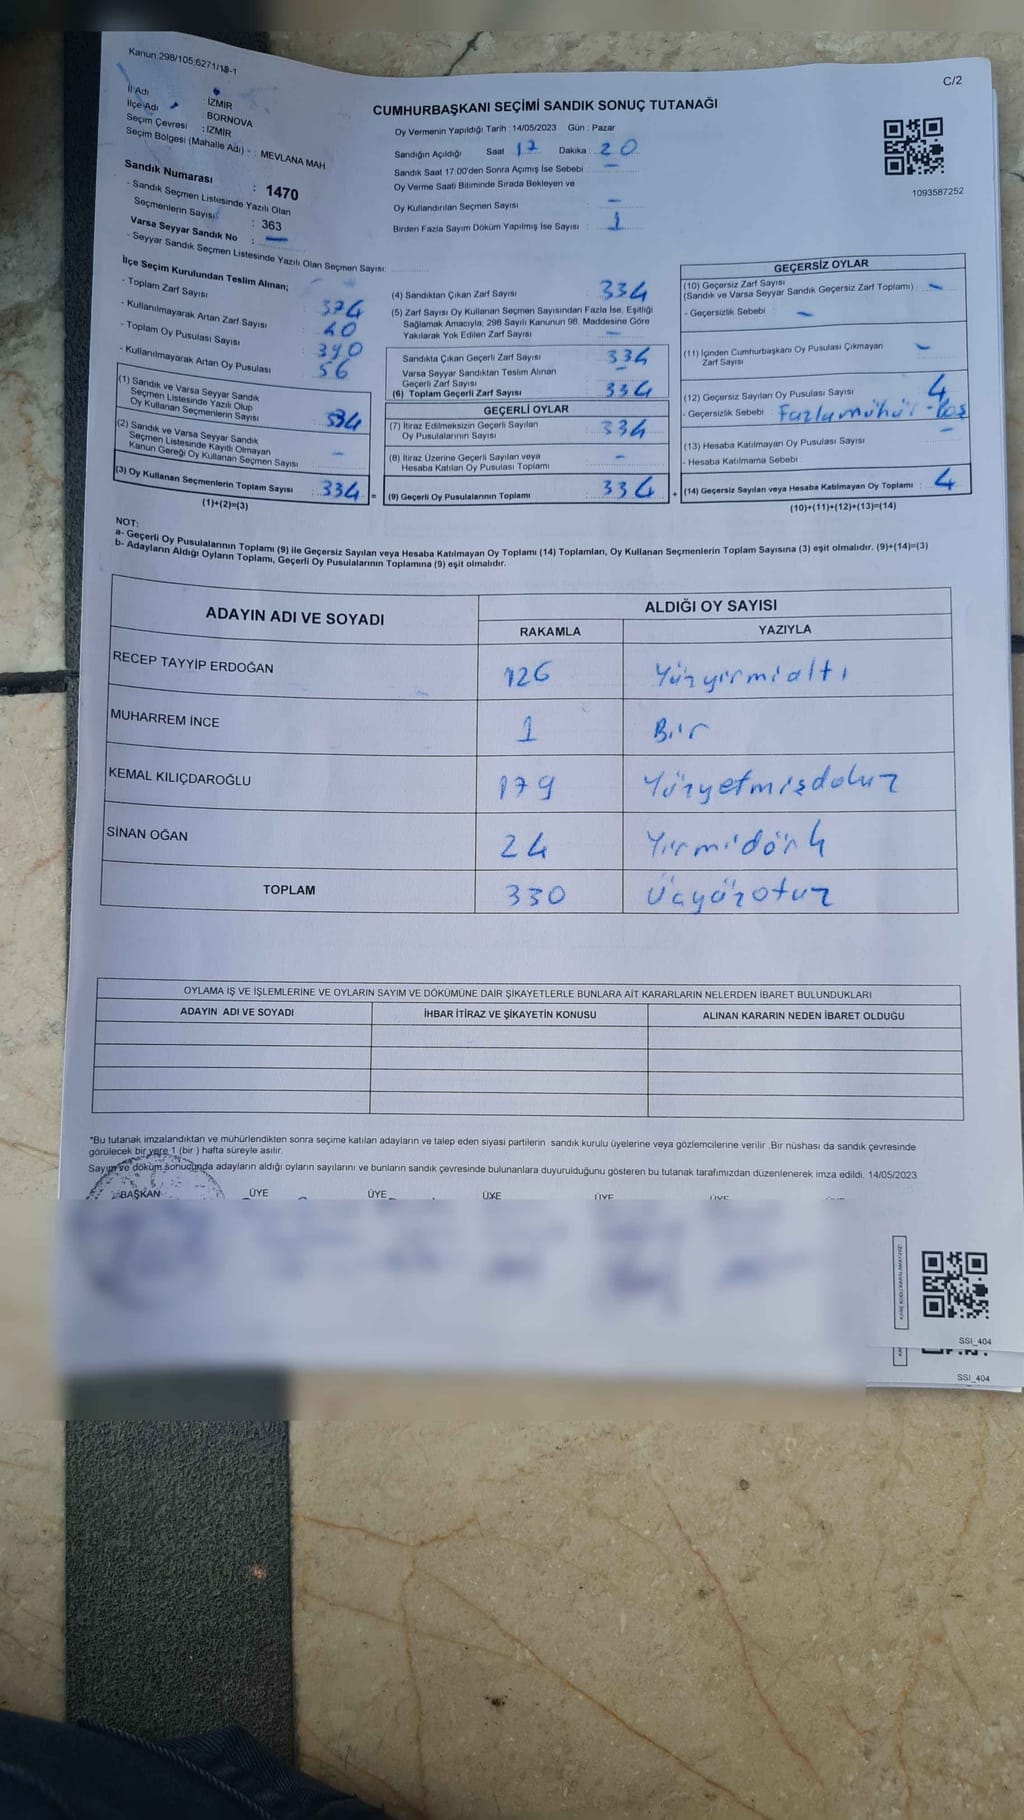 Kanun:298/105,6271/18-1
C/2
CUMHURBAŞKANI SEÇİMİ SANDIK SONUÇ TUTANAĞI
İl Adı : İZMİR
İlçe Adı : BORNOVA
Seçim Çevresi : İZMİR
Seçim Bölgesi (Mahalle Adı) - : MEVLANA MAH
Sandık Numarası : 1470
- Sandık Seçmen Listesinde Yazılı Olan
Seçmenlerin Sayısı : 363
Varsa Seyyar Sandık No : —
- Seyyar Sandık Seçmen Listesinde Yazılı Olan Seçmen Sayısı:
Oy Vermenin Yapıldığı Tarih : 14/05/2023 Gün : Pazar
Sandığın Açıldığı Saat 17 Dakika : 20
Sandık Saat 17.00'den Sonra Açımış İse Sebebi : —
Oy Verme Saati Bitiminde Sırada Bekleyen ve
Oy Kullandırılan Seçmen Sayısı : —
Birden Fazla Sayım Döküm Yapılmış İse Sayısı : 1
1093587252
İlçe Seçim Kurulundan Teslim Alınan;
- Toplam Zarf Sayısı : 374
- Kullanılmayarak Artan Zarf Sayısı : 40
- Toplam Oy Pusulası Sayısı : 390
- Kullanılmayarak Artan Oy Pusulası : 56
(1) Sandık ve Varsa Seyyar Sandık
Seçmen Listesinde Yazılı Olup
Oy Kullanan Seçmenlerin Sayısı : 334
(2) Sandık ve Varsa Seyyar Sandık
Seçmen Listesinde Kayıtlı Olmayan
Kanun Gereği Oy Kullanan Seçmen Sayısı : —
(3) Oy Kullanan Seçmenlerin Toplam Sayısı : 334 =
(1)+(2)=(3)
(4) Sandıktan Çıkan Zarf Sayısı : 334
(5) Zarf Sayısı Oy Kullanan Seçmen Sayısından Fazla İse, Eşitliği
Sağlamak Amacıyla; 298 Sayılı Kanunun 98. Maddesine Göre
Yakılarak Yok Edilen Zarf Sayısı : —
Sandıkta Çıkan Geçerli Zarf Sayısı : 334
Varsa Seyyar Sandıktan Teslim Alınan
Geçerli Zarf Sayısı : —
(6) Toplam Geçerli Zarf Sayısı : 334
GEÇERLİ OYLAR
(7) İtiraz Edilmeksizin Geçerli Sayılan
Oy Pusulalarının Sayısı : 334
(8) İtiraz Üzerine Geçerli Sayılan veya
Hesaba Katılan Oy Pusulası Toplamı : —
(9) Geçerli Oy Pusulalarının Toplamı : 334 +
GEÇERSİZ OYLAR
(10) Geçersiz Zarf Sayısı
(Sandık ve Varsa Seyyar Sandık Geçersiz Zarf Toplamı) : —
- Geçersizlik Sebebi : —
(11) İçinden Cumhurbaşkanı Oy Pusulası Çıkmayan
Zarf Sayısı : —
(12) Geçersiz Sayılan Oy Pusulası Sayısı : 4
- Geçersizlik Sebebi : Fazlamühür-Boş
(13) Hesaba Katılmayan Oy Pusulası Sayısı : —
- Hesaba Katılmama Sebebi :
(14) Geçersiz Sayılan veya Hesaba Katılmayan Oy Toplamı : 4
(10)+(11)+(12)+(13)=(14)
NOT:
a- Geçerli Oy Pusulalarının Toplamı (9) ile Geçersiz Sayılan veya Hesaba Katılmayan Oy Toplamı (14) Toplamları, Oy Kullanan Seçmenlerin Toplam Sayısına (3) eşit olmalıdır. (9)+(14)=(3)
b- Adayların Aldığı Oyların Toplamı, Geçerli Oy Pusulalarının Toplamına (9) eşit olmalıdır.
ADAYIN ADI VE SOYADI ALDIĞI OY SAYISI
RAKAMLA YAZIYLA
RECEP TAYYİP ERDOĞAN 126 Yüzyirmialtı
MUHARREM İNCE 1 Bir
KEMAL KILIÇDAROĞLU 179 Yüzyetmişdokuz
SİNAN OĞAN 24 Yirmidört
TOPLAM 330 Üçyüzotuz
OYLAMA İŞ VE İŞLEMLERİNE VE OYLARIN SAYIM VE DÖKÜMÜNE DAİR ŞİKAYETLERLE BUNLARA AİT KARARLARIN NELERDEN İBARET BULUNDUKLARI
ADAYIN ADI VE SOYADI İHBAR İTİRAZ VE ŞİKAYETİN KONUSU ALINAN KARARIN NEDEN İBARET OLDUĞU
*Bu tutanak imzalandıktan ve mühürlendikten sonra seçime katılan adayların ve talep eden siyasi partilerin sandık kurulu üyelerine veya gözlemcilerine verilir .Bir nüshası da sandık çevresinde
görülecek bir yere 1 (bir ) hafta süreyle asılır.
Sayım ve döküm sonucunda adayların aldığı oyların sayılarını ve bunların sandık çevresinde bulunanlara duyurulduğunu gösteren bu tutanak tarafımızdan düzenlenerek imza edildi. 14/05/2023
BAŞKAN ÜYE ÜYE ÜYE ÜYE ÜYE
SSI_404
SSI_404